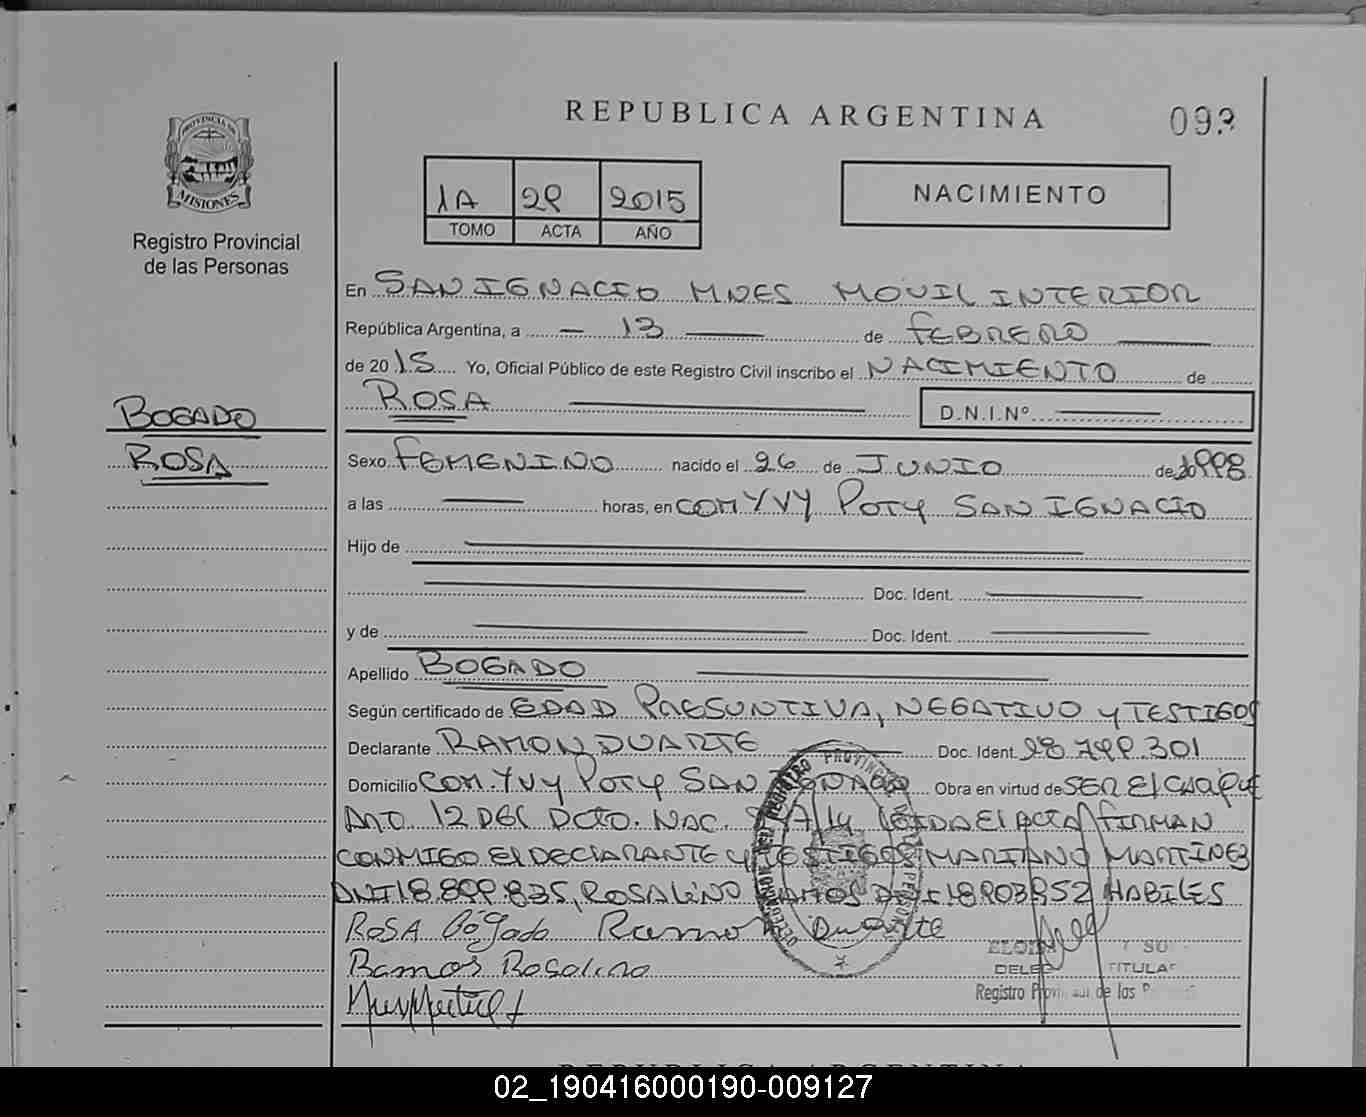 REPUBLICA ARGENTINA
PROVINCIA DE
MISIONES
Registro Provincial
de las Personas
1A 29 2015
TOMO ACTA AÑO
NACIMIENTO
En SAN IGNACIO MNES MOVIL INTERIOR
República Argentina, a - 13 de FEBRERO
de 20 15 Yo, Oficial Público de este Registro Civil inscribo el NACIMIENTO de
ROSA D.N.I.Nº
BOGADO
ROSA
Sexo FEMENINO nacido el 26 de JUNIO de 1998
a las horas, en COM YVY POTY SAN IGNACIO
Hijo de
Doc. Ident.
y de Doc. Ident.
Apellido BOGADO
Según certificado de EDAD PRESUNTIVA, NEGATIVO y TESTIGOS
Declarante RAMON DUARTE Doc. Ident. 28.799.301
Domicilio COM. YVY POTY SAN IGNACIO Obra en virtud de SER EL CACIQUE
ARTO. 12 DEL DCTO. NAC. LEIDA El ACTA FIRMAN
CONMIGO El DECLARANTE y TESTIGOS MARIANO MARTINEZ
DNI 18.899.835, ROSALINO RAMOS DNI 18903952 HABILES
ROSA Bogado Ramon Duarte
Ramos Rosalino
DELEG TITULAR
Registro Provincial de las
REPUBLICA ARGENTINA
02_190416000190-009127